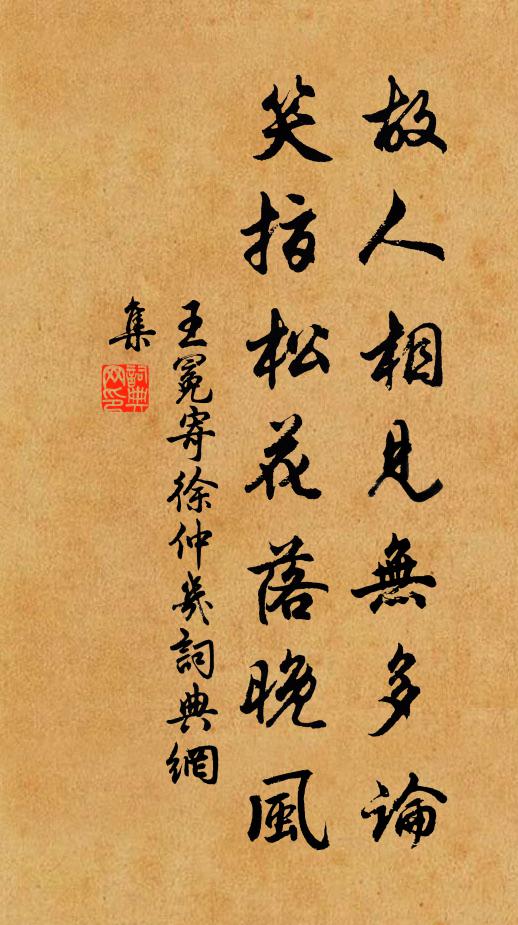 故人相見無多論
笑指松花落晚風
王冕寄徐仲幾詞典網
集
詞典網印